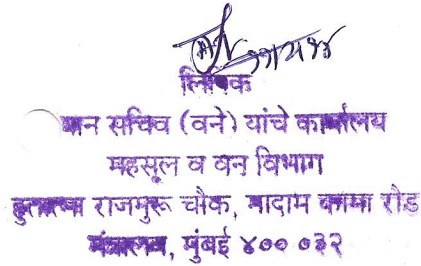 लिपिक
प्रधान सचिव (वने) यांचे कार्यालय
महसूल व वन विभाग
हुतात्मा राजगुरू चौक, मादाम कामा रोड
मंत्रालय, मुंबई ४०० ०३२